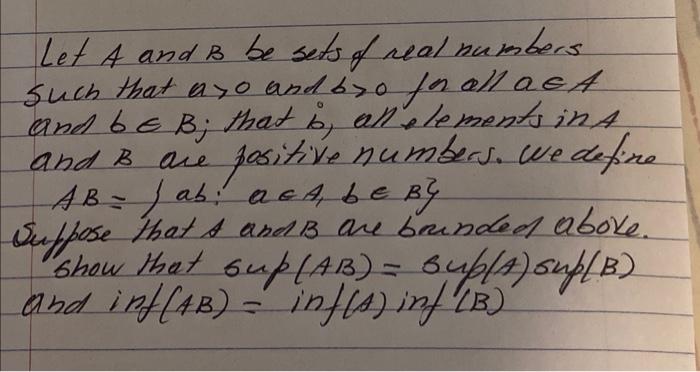 Let A and B be sets of real numbers
such that a>0 and b>0 for all a ∈ A
and b ∈ B; that is, all elements in A
and B are positive numbers. We define
AB = { ab: a ∈ A, b ∈ B}
Suppose that A and B are bounded above.
Show that sup(AB) = sup(A) sup(B)
and inf(AB) = inf(A) inf(B)